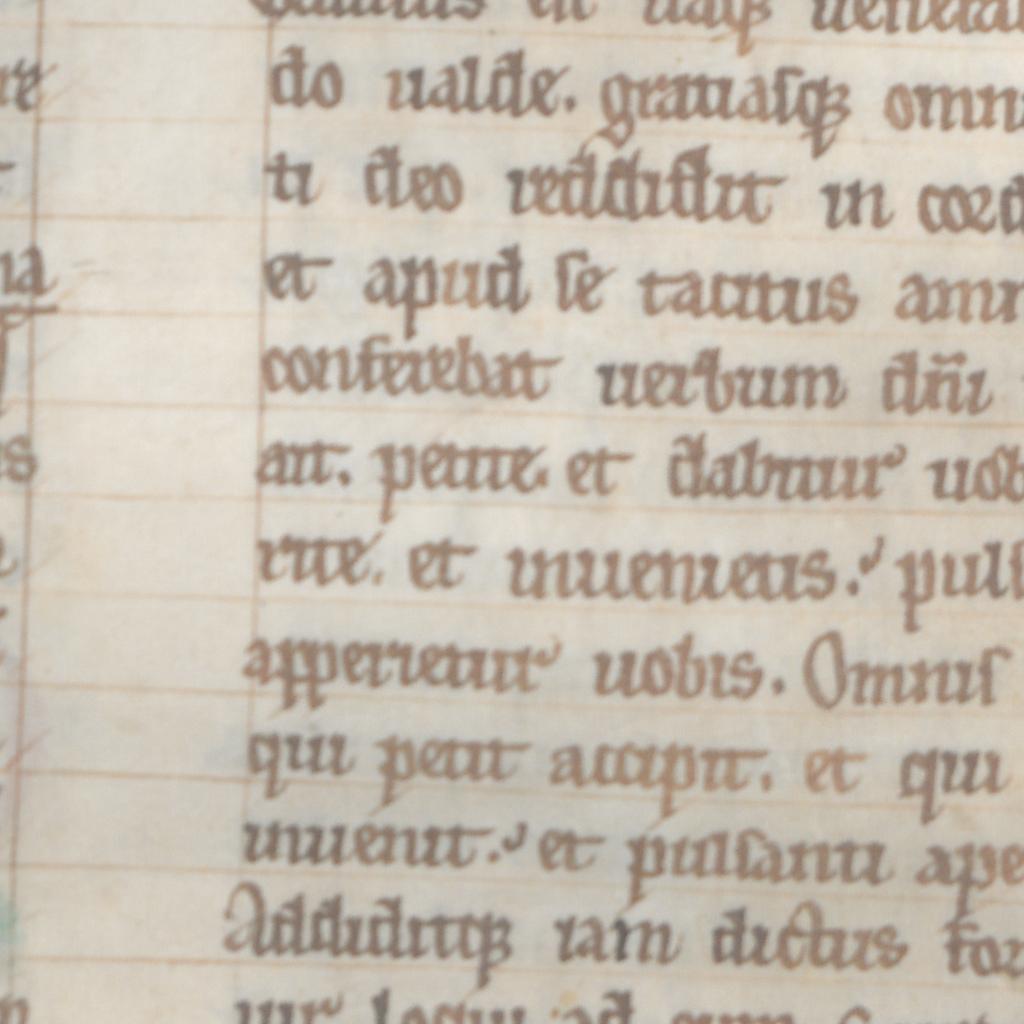 do ualde. gratiasq; omni
ti deo reddidit in cord
et apud se tacitus
conferebat uerbum dñi
ait. petite. et dabitur uob
rite. et inuenietis. pulſ
apperietur uobis. Omnis
qui petit accipit. et qui
inuenit. et pulsanti ape
Addiditq; iam dictus for